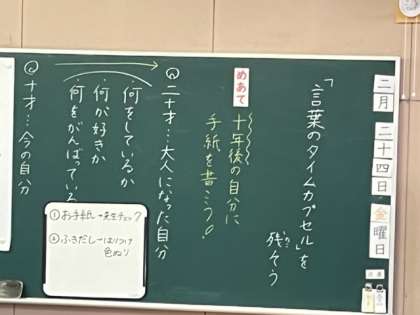 二月二十四日金曜日
「言葉のタイムカプセル」を
残そう
めあて
十年後の自分に
手紙を書こう!
二十才…大人になった自分
何をしているか
何が好きか
何をがんばっている
十才…今の自分
①お手紙→先生チェック
②ふきだし→はりつけ
色ぬり